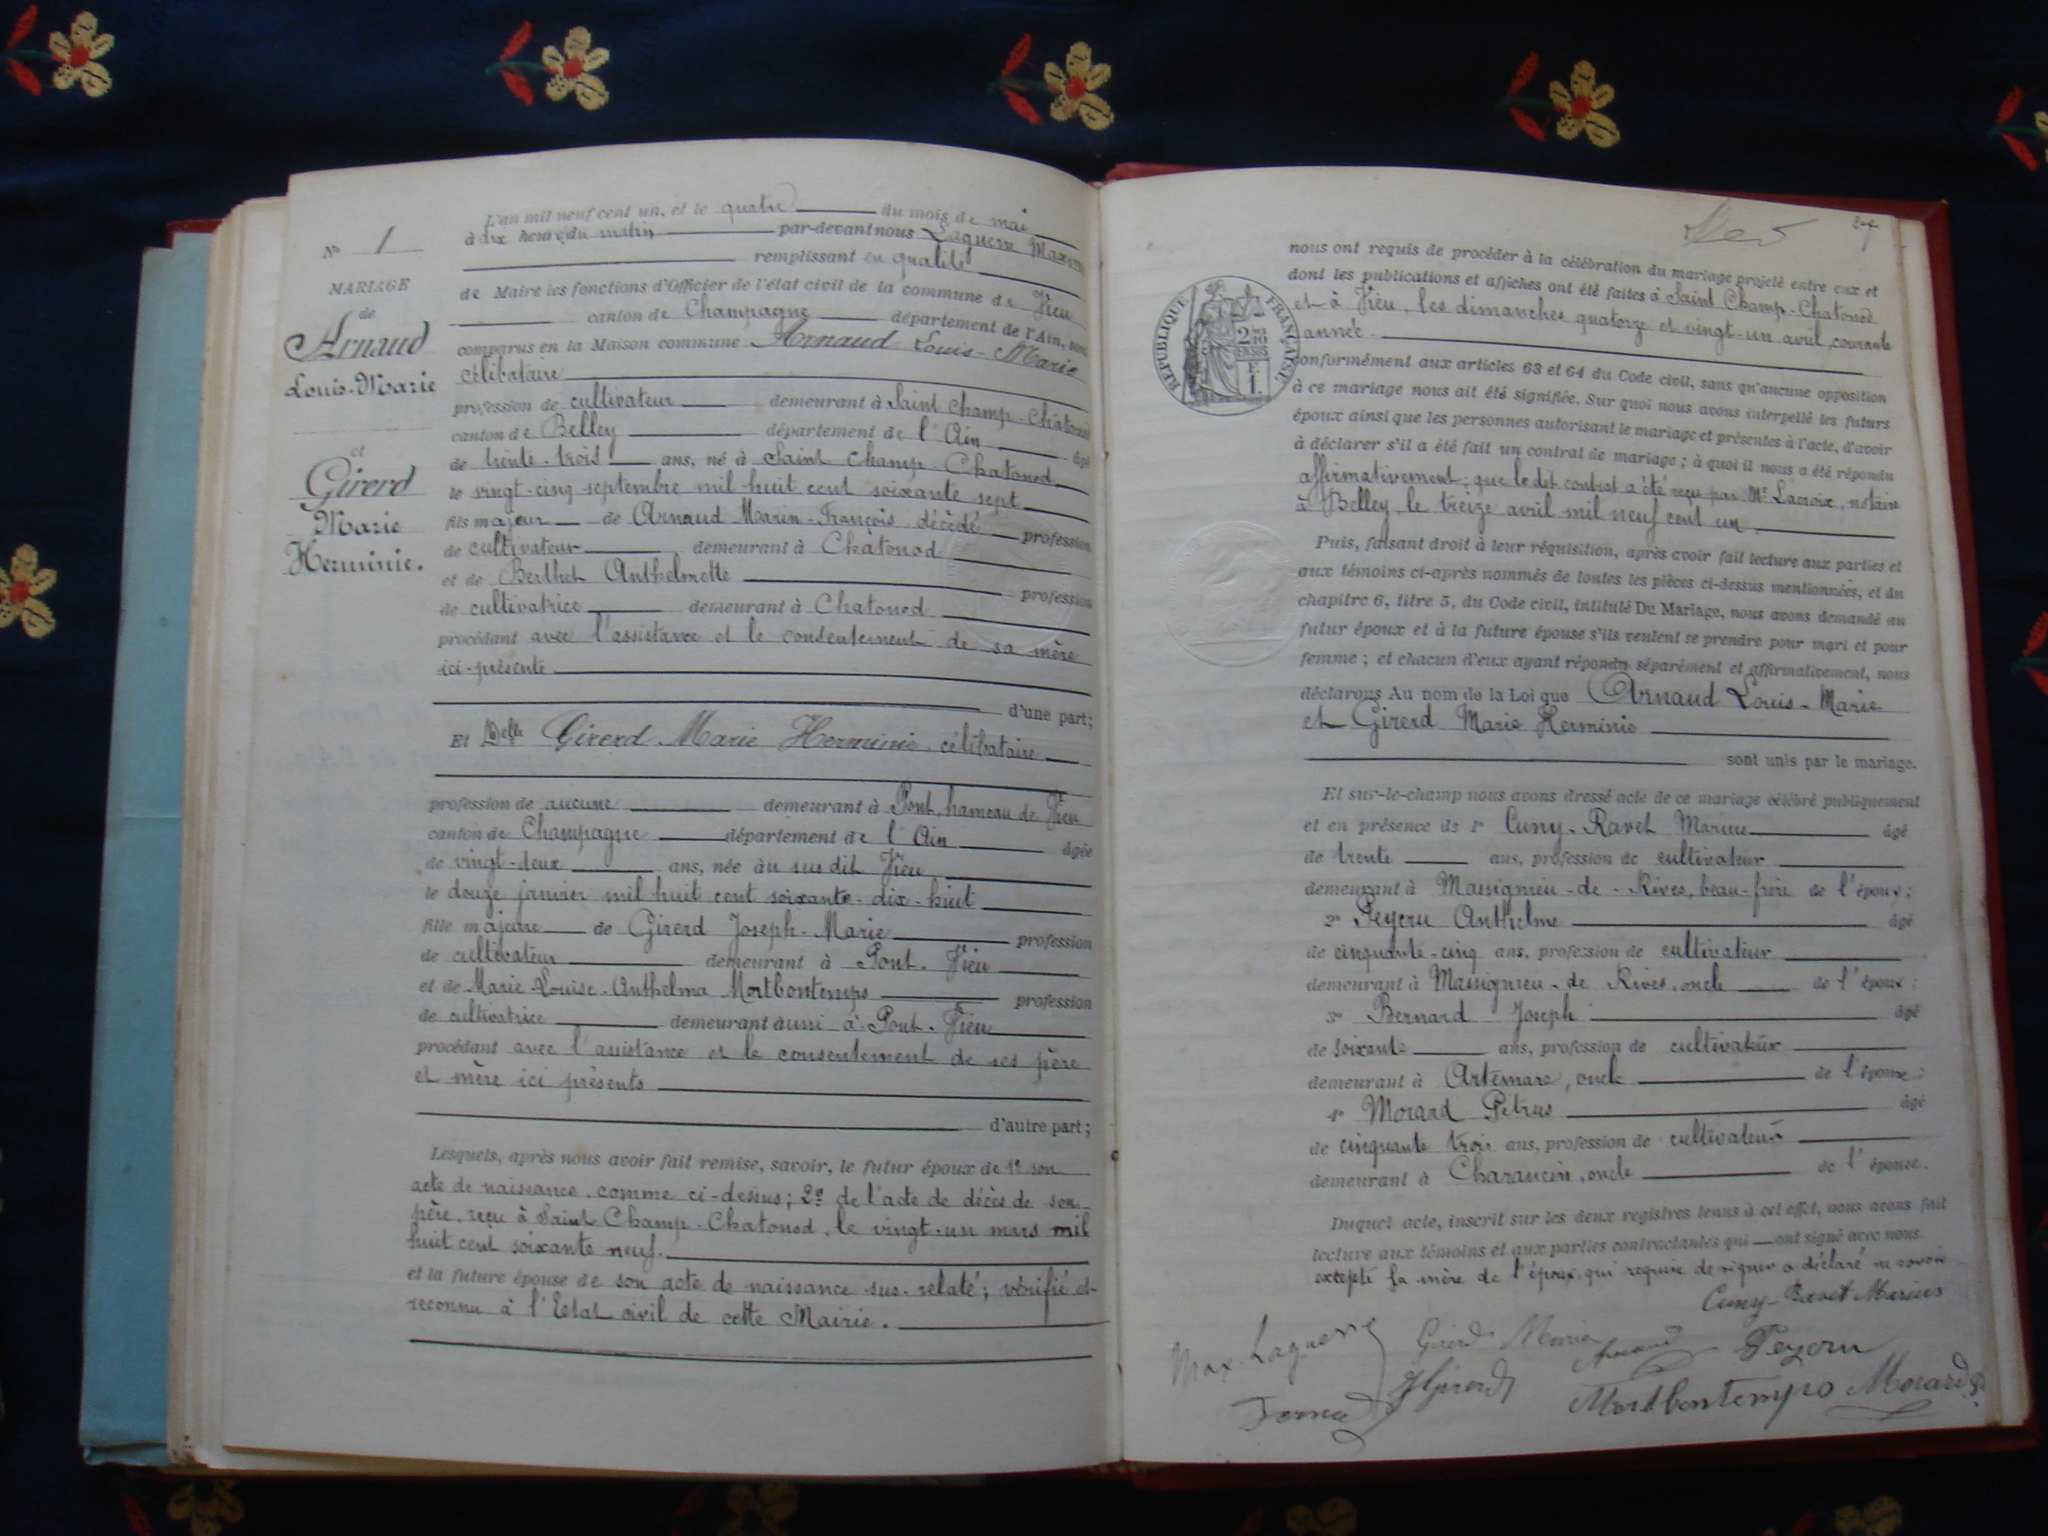 N° 1
MARIAGE
de
Arnaud
Louis-Marie
et
Girerd
Marie
Herminie.
L'an mil neuf cent un, et le quatre du mois de mai
à dix heures du matin par-devant nous Laguerre Maxime
remplissant en qualité
de Maire les fonctions d'Officier de l'état civil de la commune de Vieu
canton de Champagne département de l'Ain, sont
comparus en la Maison commune Arnaud Louis-Marie
célibataire
profession de cultivateur demeurant à Saint Champ-Chatonod
canton de Belley département de l'Ain âgé
de trente-trois ans, né à Saint Champ-Chatonod
le vingt-cinq septembre mil huit cent soixante sept
fils majeur de Arnaud Marin-François décédé profession
de cultivateur demeurant à Chatonod
et de Berthet Anthelmette profession
de cultivatrice demeurant à Chatonod
procédant avec l'assistance et le consentement de sa mère
ici-présente
d'une part;
Et Delle Girerd Marie Herminie, célibataire
profession de aucune demeurant à Pont, hameau de Vieu
canton de Champagne département de l'Ain âgée
de vingt-deux ans, née au sus dit Vieu
le douze janvier mil huit cent soixante-dix-huit
fille majeure de Girerd Joseph-Marie profession
de cultivateur demeurant à Pont-Vieu
et de Marie Louise-Anthelma Mortbontemps profession
de cultivatrice demeurant aussi à Pont-Vieu
procédant avec l'assistance et le consentement de ses père
et mère ici présents
d'autre part;
Lesquels, après nous avoir fait remise, savoir, le futur époux de 1° son
acte de naissance, comme ci-dessus; 2° de l'acte de décès de son
père, reçu à Saint Champ-Chatonod, le vingt-un mars mil
huit cent soixante neuf.
et la future épouse de son acte de naissance sus-relaté; vérifié et
reconnu à l'Etat civil de cette Mairie.
nous ont requis de procéder à la célébration du mariage projeté entre eux et
dont les publications et affiches ont été faites à Saint Champ-Chatonod
et à Vieu, les dimanches quatorze et vingt-un avril, courante
année.
RÉPUBLIQUE FRANÇAISE
2/10 EN SUS
1 F.
conformément aux articles 63 et 64 du Code civil, sans qu'aucune opposition
à ce mariage nous ait été signifiée. Sur quoi nous avons interpellé les futurs
époux ainsi que les personnes autorisant le mariage et présentes à l'acte, d'avoir
à déclarer s'il a été fait un contrat de mariage; à quoi il nous a été répondu
affirmativement; que le dit contrat a été reçu par Me Lacroix, notaire
à Belley, le treize avril mil neuf cent un.
Puis, faisant droit à leur réquisition, après avoir fait lecture aux parties et
aux témoins ci-après nommés de toutes les pièces ci-dessus mentionnées, et du
chapitre 6, titre 5, du Code civil, intitulé Du Mariage, nous avons demandé au
futur époux et à la future épouse s'ils veulent se prendre pour mari et pour
femme; et chacun d'eux ayant répondu séparément et affirmativement, nous
déclarons Au nom de la Loi que Arnaud Louis-Marie
et Girerd Marie Herminie
sont unis par le mariage.
Et sur-le-champ nous avons dressé acte de ce mariage célébré publiquement
et en présence de 1° Cuny-Ravet Marius âgé
de trente ans, profession de cultivateur
demeurant à Massignieu-de-Rives, beau-frère de l'époux;
2° Peyzru Anthelme âgé
de cinquante-cinq ans, profession de cultivateur
demeurant à Massignieu-de-Rives, oncle de l'époux;
3° Bernard Joseph âgé
de soixante ans, profession de cultivateur
demeurant à Artemare, oncle de l'épouse;
4° Morard Petrus âgé
de cinquante trois ans, profession de cultivateur
demeurant à Charancin, oncle de l'épouse.
Duquel acte, inscrit sur les deux registres tenus à cet effet, nous avons fait
lecture aux témoins et aux parties contractantes qui ont signé avec nous
excepté la mère de l'époux, qui requise de signer a déclaré ne savoir
Cuny-Ravet Marius
Max. Laguerre Girerd Marie Arnaud Peyzru
JGirerd Mortbontemps Morard P.